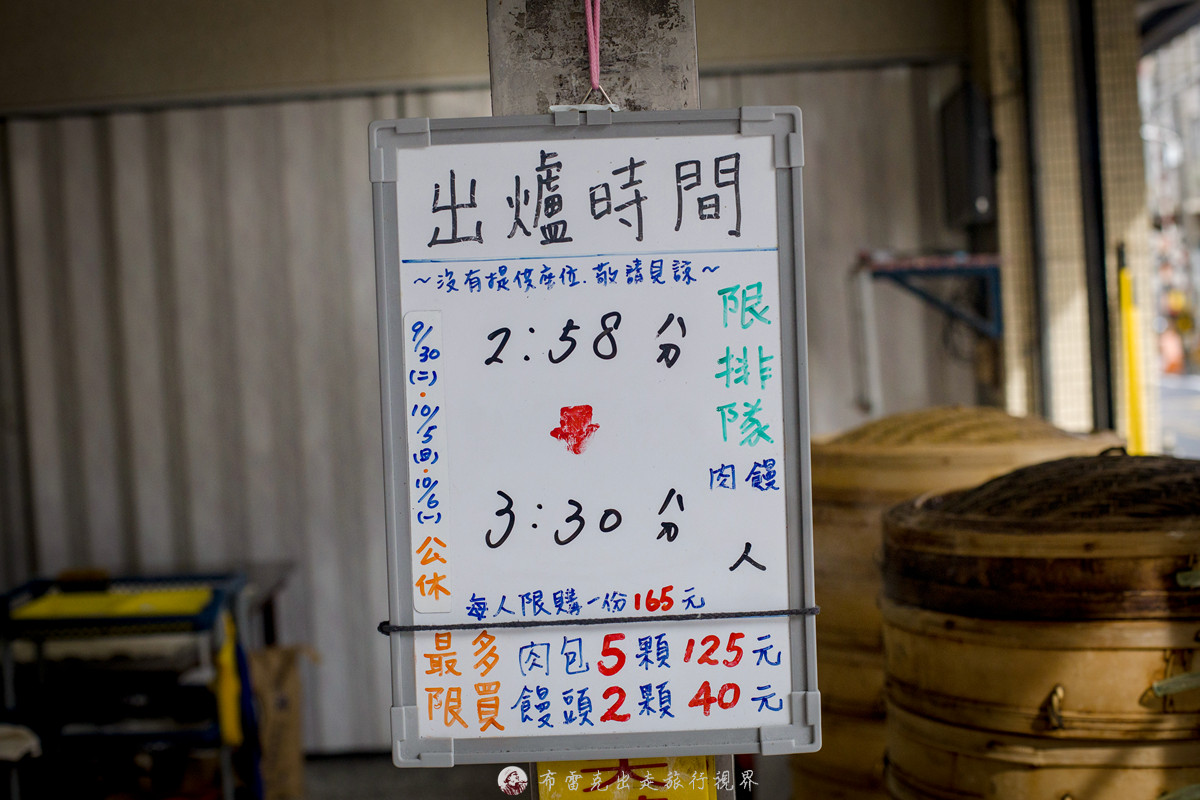 出爐時間
~沒有提供座位.敬請見諒~
9/30(二)·10/5(日)·10/6(一)公休
2:58分
3:30分
限排隊
肉饅
人
每人限購一份165元
最多限買
肉包5顆125元
饅頭2顆40元
布雷克出走旅行視界